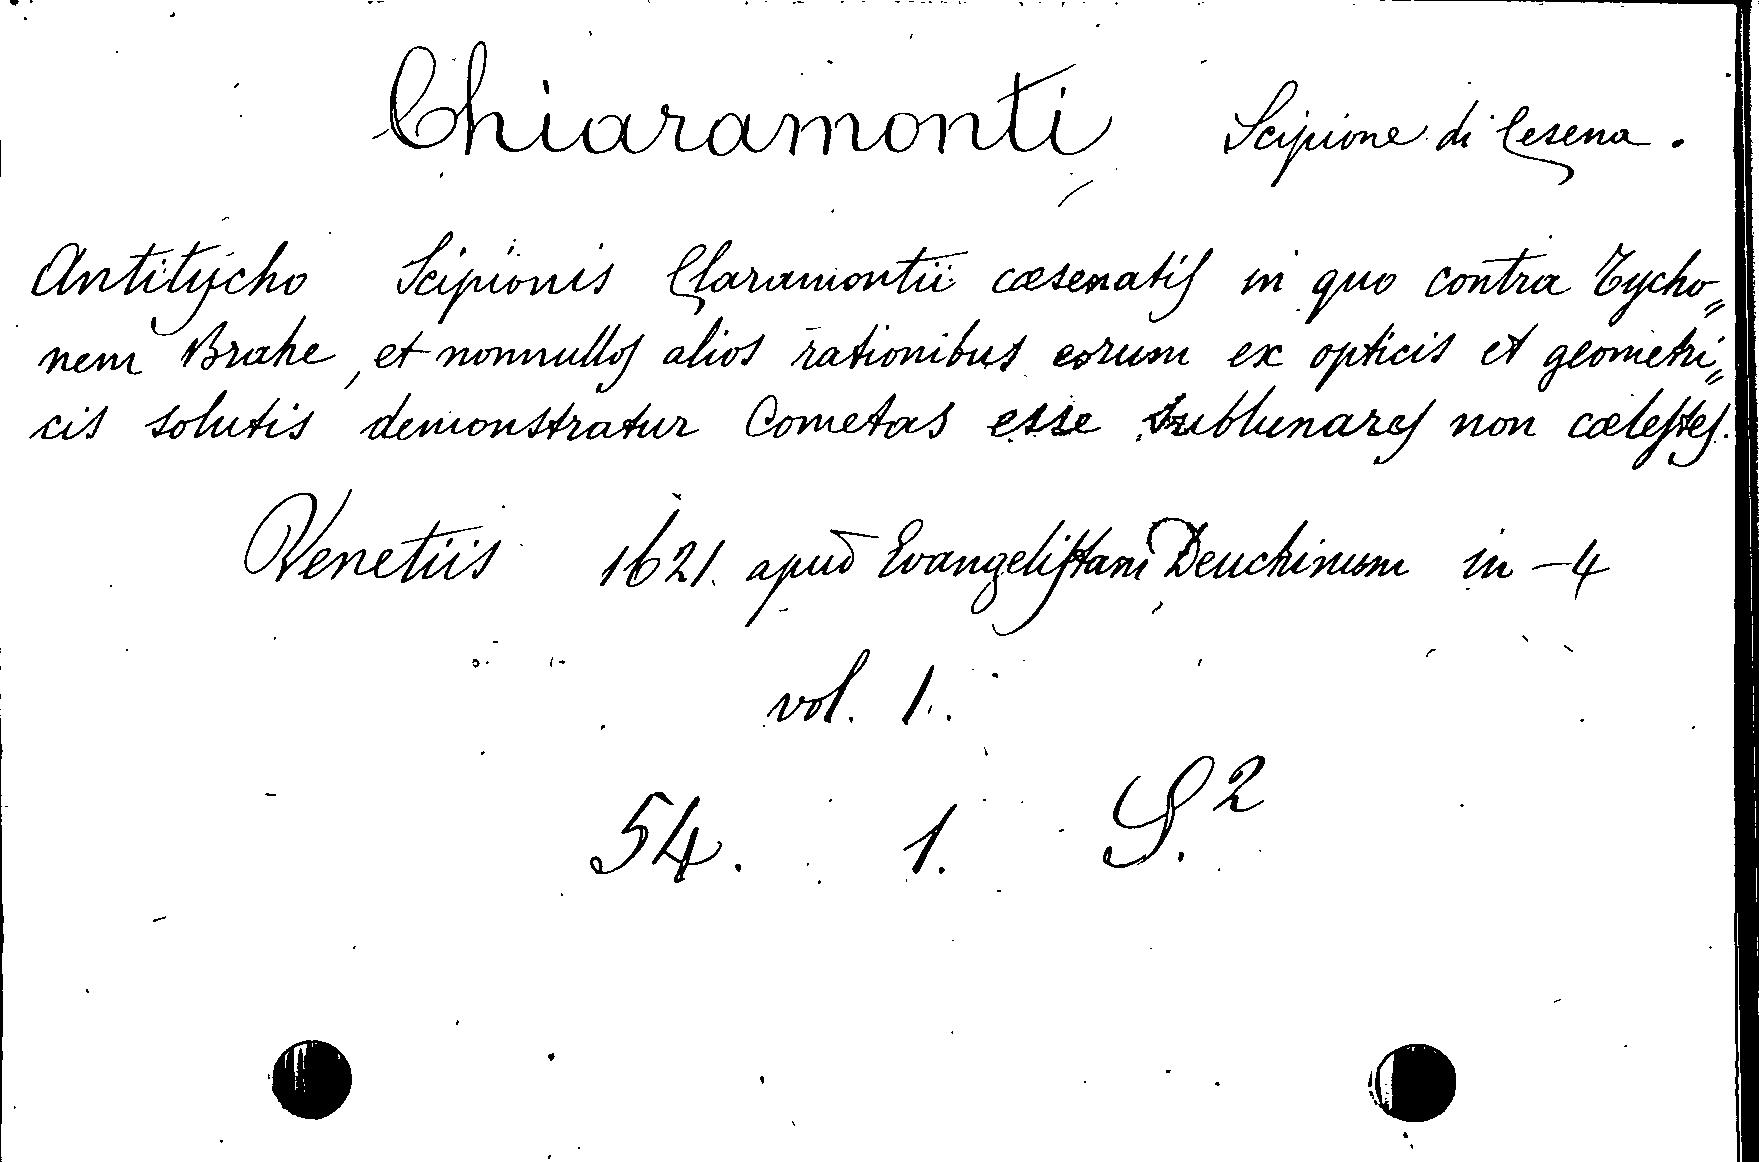 Chiaramonti Scipione di Cesena.
Antitycho Scipionis Claramontii cæsenatis in quo contra Tycho„
nem Brahe, et nonnullos alios rationibus eorum ex opticis et geometri„
cis solutis demonstratur Cometas esse sublunares non cælestes.
Venetiis 1621. apud Evangelistam Deuchinum in-4
vol. 1.
54. 1. S.²